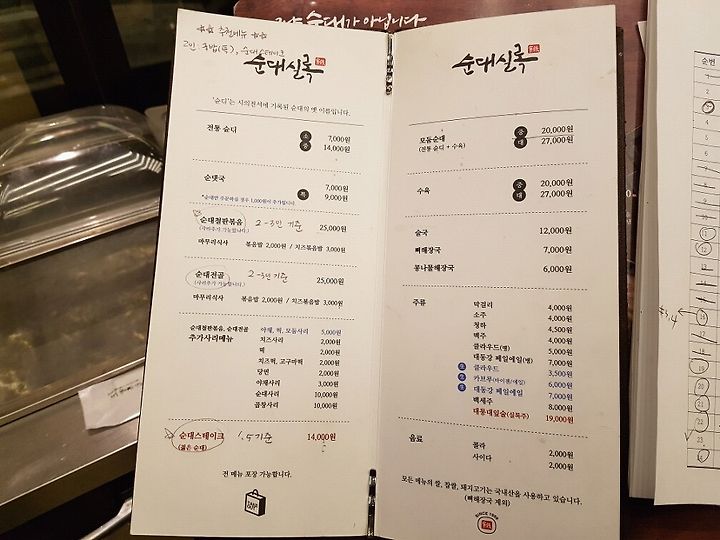 순대가 아닙니다
☆☆ 추천메뉴 ☆☆
2인 국밥(특), 순대스테이크
순대실록
'순디'는 시의전서에 기록된 순대의 옛 이름입니다.
전통 순디
소 7,000원
중 14,000원
순댓국
7,000원
특 9,000원
순대철판볶음 2-3인 기준 25,000원
(사리추가 가능합니다.)
마무리식사 볶음밥 2,000원 / 치즈볶음밥 3,000원
순대전골 2-3인 기준 25,000원
(사리추가 가능합니다.)
마무리식사 볶음밥 2,000원 / 치즈볶음밥 3,000원
순대철판볶음, 순대전골
추가사리메뉴
야채, 떡, 모둠사리 5,000원
치즈사리 2,000원
떡 2,000원
치즈떡, 고구마떡 2,000원
당면 2,000원
야채사리 3,000원
순대사리 10,000원
곱창사리 10,000원
순대스테이크 1.5기준 14,000원
(젊은 순대)
전 메뉴 포장 가능합니다.
순대실록
모둠순대
(전통 순디 + 수육)
중 20,000원
대 27,000원
수육
중 20,000원
대 27,000원
술국 12,000원
뼈해장국 7,000원
콩나물해장국 6,000원
주류
막걸리 4,000원
소주 4,000원
청하 4,500원
맥주 4,000원
클라우드(병) 5,000원
대동강 페일에일(병) 7,000원
클라우드 3,500원
카브루(바이젠/에일) 6,000원
대동강 페일에일 7,000원
백세주 8,000원
대통대잎술(실록주) 19,000원
음료
콜라 2,000원
사이다 2,000원
모든 메뉴의 쌀, 찹쌀, 돼지고기는 국내산을 사용하고 있습니다.
(뼈해장국 제외)
순번
1
2
3
11
12
16
17
18
19
20
21
22
23